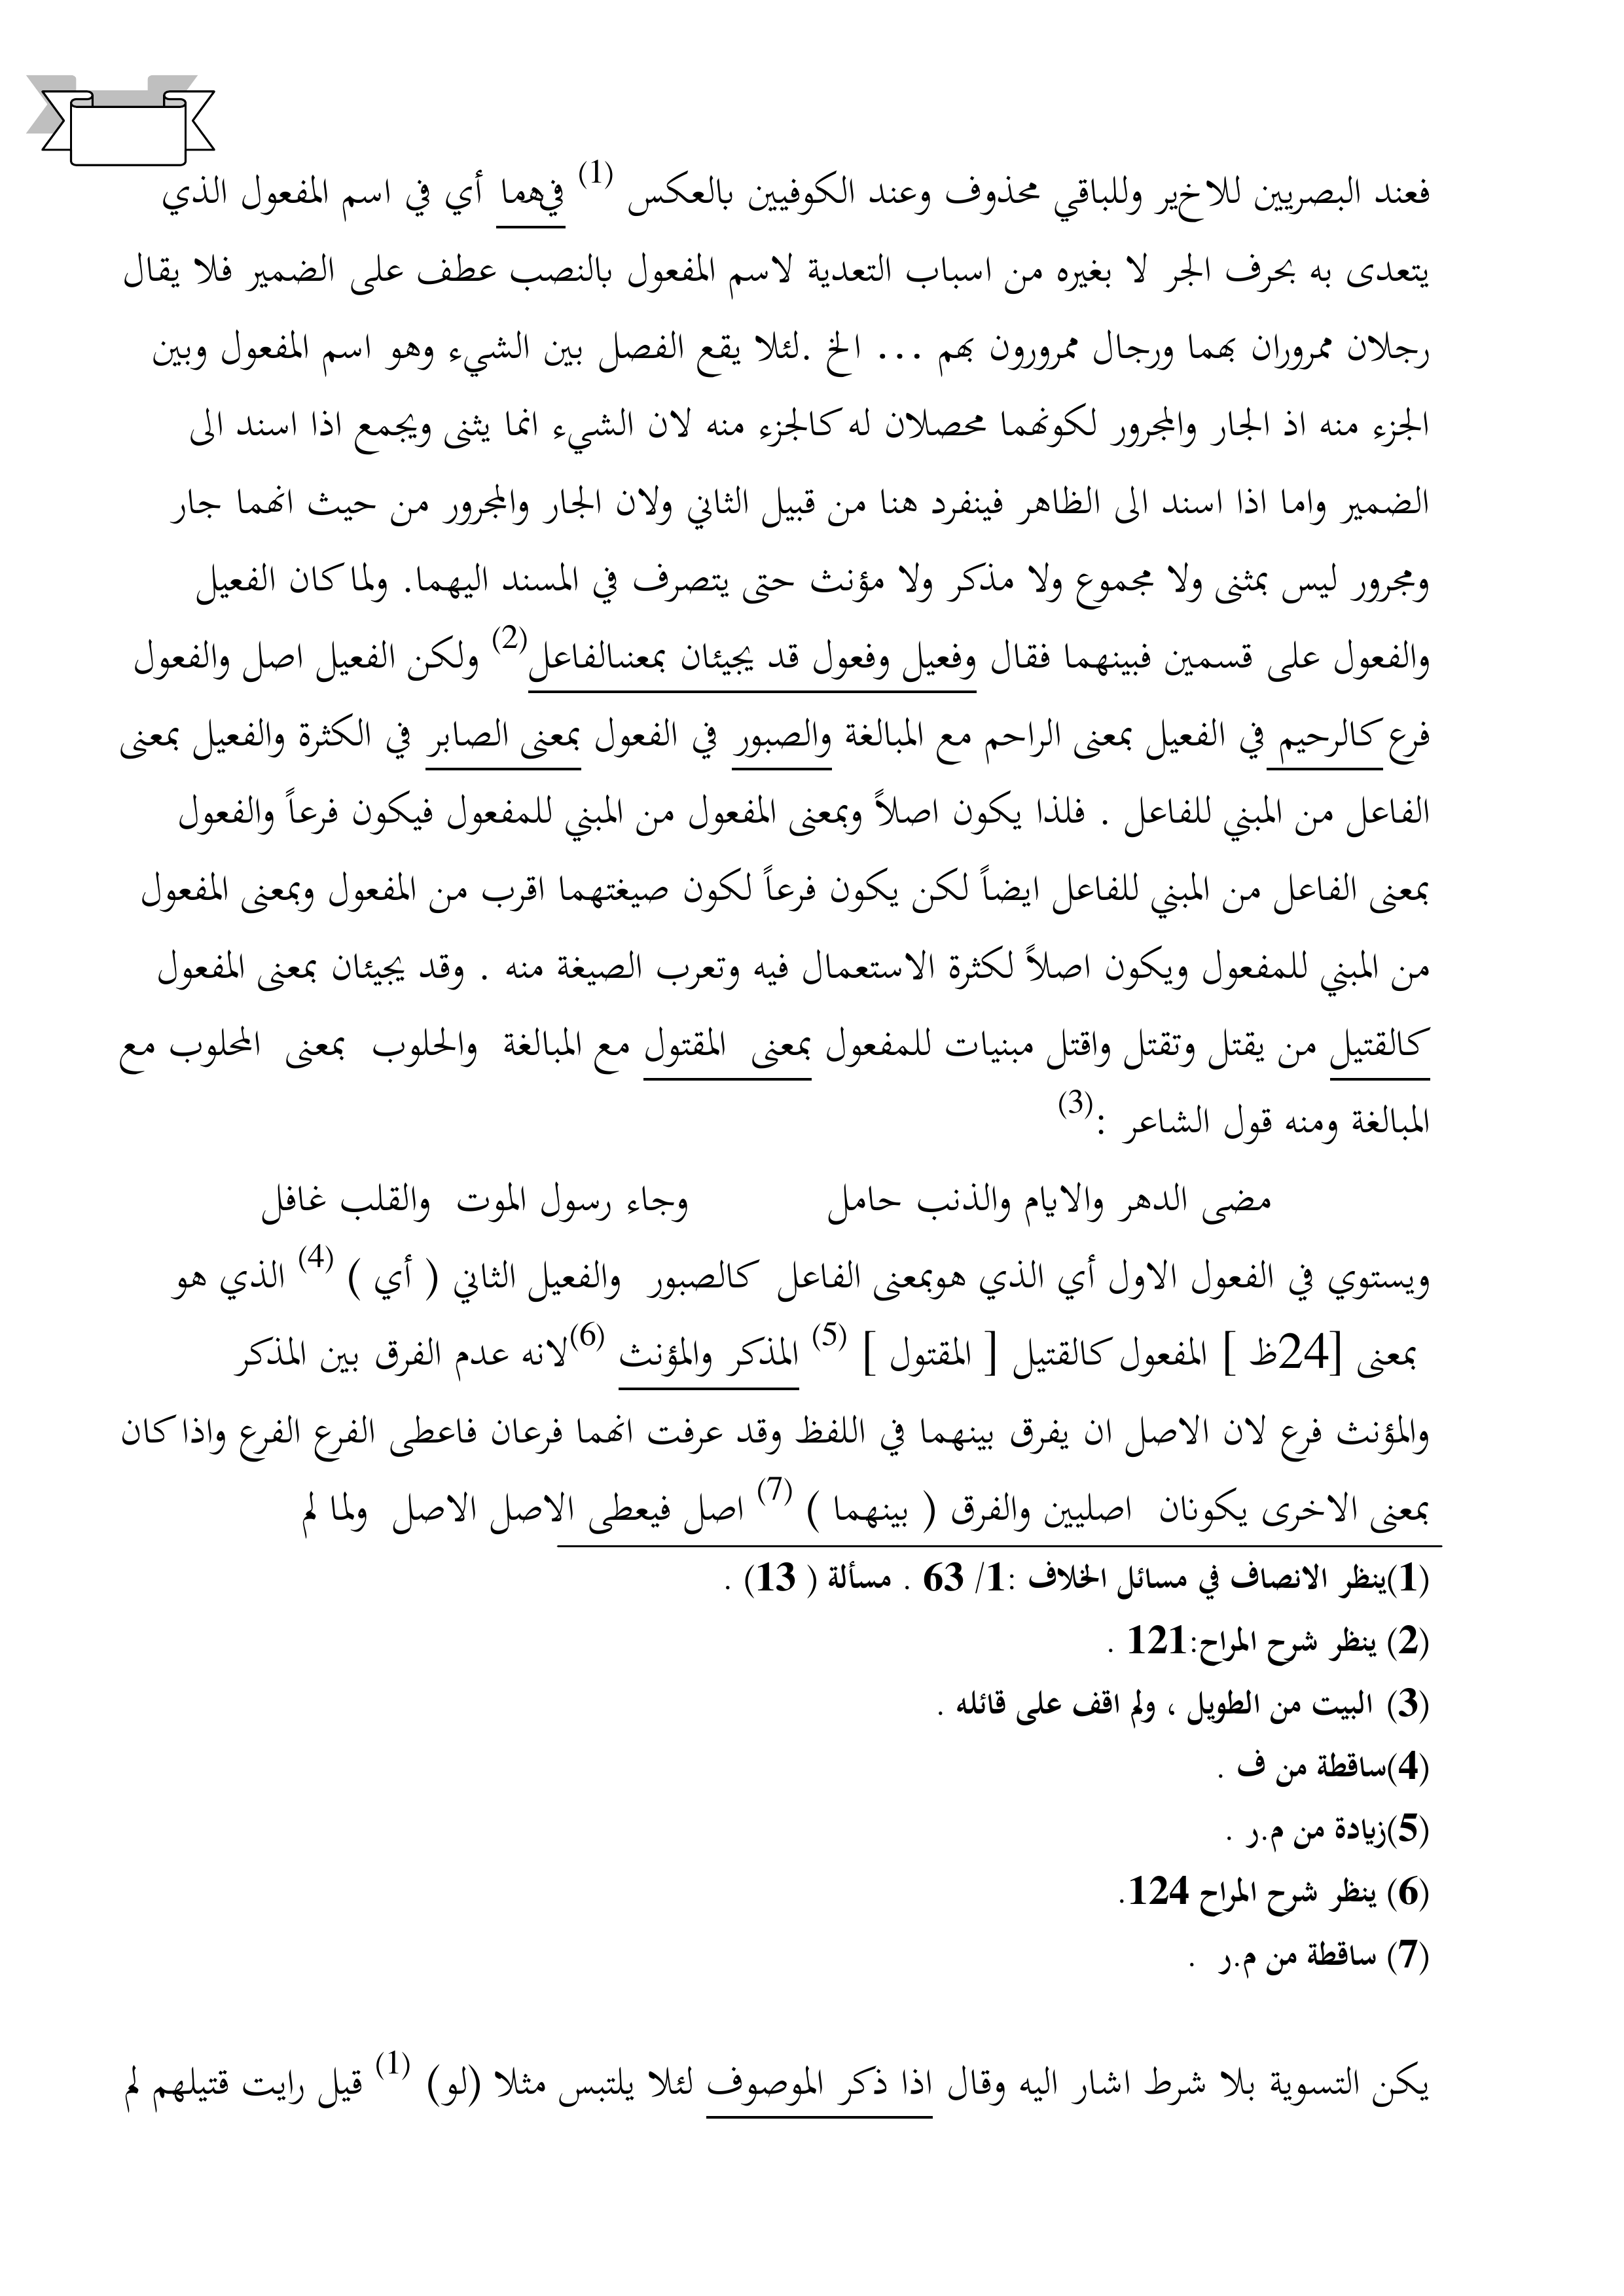 فعند البصريين للاخير وللباقي محذوف وعند الكوفيين بالعكس (1) فيهما أي في اسم المفعول الذي
يتعدى به بحرف الجر لا بغيره من اسباب التعدية لاسم المفعول بالنصب عطف على الضمير فلا يقال
رجلان ممروران بهما ورجال ممرورون بهم ... الخ .لئلا يقع الفصل بين الشيء وهو اسم المفعول وبين
الجزء منه اذ الجار والمجرور لكونهما محصلان له كالجزء منه لان الشيء انما يثنى ويجمع اذا اسند الى
الضمير واما اذا اسند الى الظاهر فينفرد هنا من قبيل الثاني ولان الجار والمجرور من حيث انهما جار
ومجرور ليس بمثنى ولا مجموع ولا مذكر ولا مؤنث حتى يتصرف في المسند اليهما. ولما كان الفعيل
والفعول على قسمين فبينهما فقال وفعيل وفعول قد يجيئان بمعنىالفاعل(2) ولكن الفعيل اصل والفعول
فرع كالرحيم في الفعيل بمعنى الراحم مع المبالغة والصبور في الفعول بمعنى الصابر في الكثرة والفعيل بمعنى
الفاعل من المبني للفاعل . فلذا يكون اصلاً وبمعنى المفعول من المبني للمفعول فيكون فرعاً والفعول
بمعنى الفاعل من المبني للفاعل ايضاً لكن يكون فرعاً لكون صيغتهما اقرب من المفعول وبمعنى المفعول
من المبني للمفعول ويكون اصلاً لكثرة الاستعمال فيه وتعرب الصيغة منه . وقد يجيئان بمعنى المفعول
كالقتيل من يقتل وتقتل واقتل مبنيات للمفعول بمعنى المقتول مع المبالغة والحلوب بمعنى المحلوب مع
المبالغة ومنه قول الشاعر :(3)
مضى الدهر والايام والذنب حامل وجاء رسول الموت والقلب غافل
ويستوي في الفعول الاول أي الذي هوبمعنى الفاعل كالصبور والفعيل الثاني ( أي ) (4) الذي هو
بمعنى [24ظ ] المفعول كالقتيل [ المقتول ] (5) المذكر والمؤنث (6)لانه عدم الفرق بين المذكر
والمؤنث فرع لان الاصل ان يفرق بينهما في اللفظ وقد عرفت انهما فرعان فاعطى الفرع الفرع واذا كان
بمعنى الاخرى يكونان اصليين والفرق ( بينهما ) (7) اصل فيعطى الاصل الاصل ولما لم
(1)ينظر الانصاف في مسائل الخلاف :1/ 63 . مسألة ( 13) .
(2) ينظر شرح المراح:121 .
(3) البيت من الطويل ، ولم اقف على قائله .
(4)ساقطة من ف .
(5)زيادة من م.ر .
(6) ينظر شرح المراح 124.
(7) ساقطة من م.ر .
يكن التسوية بلا شرط اشار اليه وقال اذا ذكر الموصوف لئلا يلتبس مثلا (لو) (1) قيل رايت قتيلهم لم